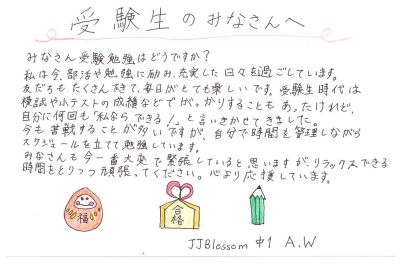 受験生のみなさんへ
みなさん受験勉強はどうですか?
私は今、部活や勉強に励み、充実した日々を過ごしています。
友だちもたくさんできて、毎日がとても楽しいです。受験生時代は
模試や小テストの成績などでがっかりすることもあったけれど、
自分に何回も「私ならできる!」と言いきかせてきました。
今も苦戦することが多いですが、自分で時間を管理しながら
スケジュールを立てて勉強しています。
みなさんも今一番大変で緊張していると思いますが、リラックスできる
時間をとりつつ頑張ってください。心より応援しています。
福
合格
JJBlossom 中1 A.W